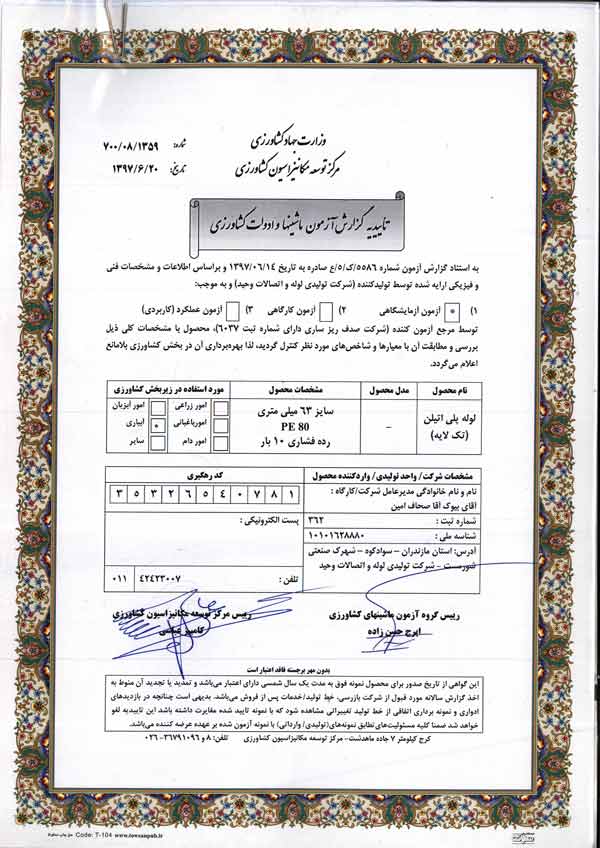 وزارت جهاد کشاورزی
مرکز توسعه مکانیزاسیون کشاورزی
شماره: ۷۰۰/۰۸/۱۳۵۹
تاریخ: ۱۳۹۷/۶/۲۰
تاییدیه گزارش آزمون ماشینها و ادوات کشاورزی
به استناد گزارش آزمون شماره ۵۵۸۶/ک/۵/ع صادره به تاریخ ۱۳۹۷/۰۶/۱۴ و براساس اطلاعات و مشخصات فنی
و فیزیکی ارایه شده توسط تولیدکننده (شرکت تولیدی لوله و اتصالات وحید) و به موجب:
۱) آزمون آزمایشگاهی * ۲) آزمون کارگاهی ۳) آزمون عملکرد (کاربردی)
توسط مرجع آزمون کننده (شرکت صدف ریز ساری دارای شماره ثبت ۶۰۳۷)، محصول با مشخصات کلی ذیل
بررسی و مطابقت آن با معیارها و شاخص‌های مورد نظر کنترل گردید، لذا بهره‌برداری آن در بخش کشاورزی بلامانع
اعلام می‌گردد.
نام محصول مدل محصول مشخصات محصول مورد استفاده در زیربخش کشاورزی
لوله پلی اتیلن
(تک لایه)
–
سایز ۶۳ میلی متری
PE 80
رده فشاری ۱۰ بار
امور زراعی امور آبزیان
امورباغبانی آبیاری *
امور دام سایر
مشخصات شرکت/ واحد تولیدی/ واردکننده محصول کد رهگیری
نام و نام خانوادگی مدیرعامل شرکت/کارگاه :
آقای بیوک آقا صحاف امین
۳ ۵ ۳ ۲ ۶ ۵ ۴ ۰ ۷ ۸ ۱
شماره ثبت : ۳۶۲
پست الکترونیکی :
شناسه ملی : ۱۰۱۰۱۶۲۸۸۸۰
آدرس: استان مازندران – سوادکوه – شهرک صنعتی
شورمست – شرکت تولیدی لوله و اتصالات وحید
تلفن : ۴۲۴۲۳۰۰۷ ۰۱۱
رییس گروه آزمون ماشینهای کشاورزی
ایرج حسن زاده
رییس مرکز توسعه مکانیزاسیون کشاورزی
کامبیز عباسی
بدون مهر برجسته فاقد اعتبار است
این گواهی از تاریخ صدور برای محصول نمونه فوق به مدت یک سال شمسی دارای اعتبار می‌باشد و تمدید یا تجدید آن منوط به
اخذ گزارش سالانه مورد قبول از شرکت بازرسی، خط تولید/خدمات پس از فروش می‌باشد. بدیهی است چنانچه در بازدیدهای
ادواری و نمونه برداری اتفاقی از خط تولید تغییراتی مشاهده شود که با نمونه تایید شده مغایرت داشته باشد این تاییدیه لغو
خواهد شد ضمنا کلیه مسئولیت‌های تطابق نمونه‌های(تولیدی/ وارداتی) با نمونه آزمون شده بر عهده عرضه کننده می‌باشد.
کرج کیلومتر ۷ جاده ماهدشت- مرکز توسعه مکانیزاسیون کشاورزی تلفن: ۸ و ۳۶۷۹۱۰۹۶-۰۲۶
Code: T-104 www.towsanpub.ir